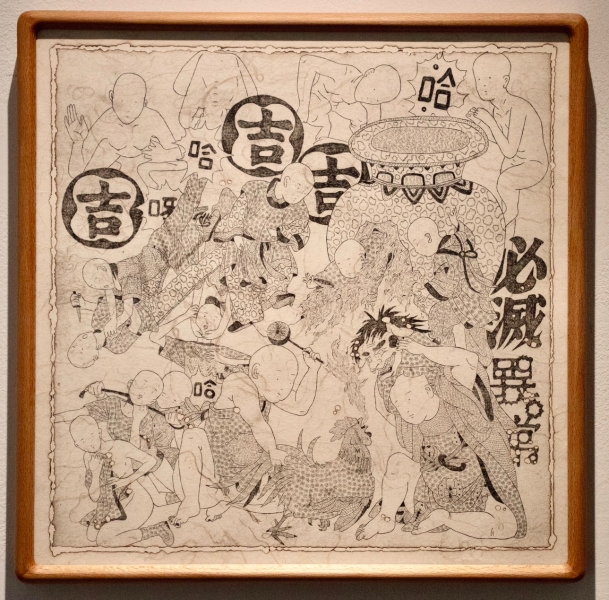 哈
吉
哈
吉
吉
呀
必滅
哈